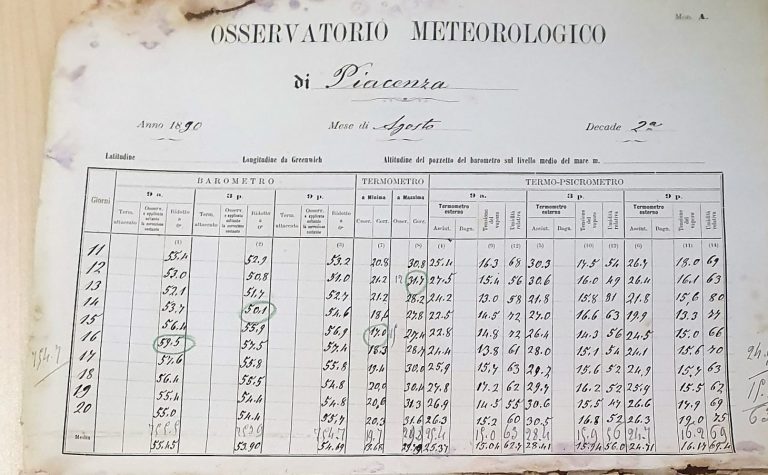 Mod. A.
OSSERVATORIO METEOROLOGICO
di Piacenza
Anno 1890 Mese di Agosto Decade 2a
Latitudine Longitudine da Greenwich Altitudine del pozzetto del barometro sul livello medio del mare m.
Giorni BAROMETRO TERMOMETRO TERMO-PSICROMETRO
9 a. 3 p. 9 p. a Minima a Massima 9 a. 3 p. 9 p.
Term. attaccato Ridotto a 0° Term. attaccato Ridotto a 0° Term. attaccato Ridotto a 0° Osser. Corr. Osser. Corr. Termometro esterno Tensione del vapore Umidità relativa Termometro esterno Tensione del vapore Umidità relativa Termometro esterno Tensione del vapore Umidità relativa
Asciut. Bagn. Asciut. Bagn. Asciut. Bagn.
(1) (2) (3) (7) (8) (4) (9) (12) (5) (10) (13) (6) (11) (14)
11 55.4 52.9 53.2 20.8 30.8 25.4 16.3 68 30.3 17.5 54 26.7 18.0 69
12 53.0 50.8 51.0 21.2 31.7 27.5 15.4 56 30.6 16.0 49 26.4 16.1 63
13 52.1 51.7 52.7 21.2 28.2 24.2 13.0 58 21.8 15.8 81 21.8 15.6 80
14 53.7 50.1 54.6 18.6 27.8 22.5 14.5 72 27.0 16.6 63 19.9 13.3 77
15 56.4 55.9 56.9 17.0 27.4 22.8 14.8 72 26.4 14.3 56 24.5 15.0 66
16 59.5 57.5 57.4 18.3 28.7 24.4 13.8 61 28.0 15.1 54 24.1 15.6 70
17 57.6 55.8 55.8 19.4 30.0 25.9 15.7 63 29.2 15.6 52 24.9 15.7 63
18 56.4 55.5 54.8 20.0 30.4 27.8 17.2 62 29.7 16.2 52 25.9 15.5 62
19 55.4 54.4 54.8 20.6 31.3 26.9 14.5 55 30.6 15.5 47 26.6 17.9 69
20 55.0 54.4 55.7 20.3 31.6 26.3 15.2 60 30.5 16.8 52 26.3 19.0 75
Media 754.7 25.4 15.0 63 28.4 15.9 56 24.7 16.2 69
55.45 53.90 54.69 25.37 15.04 62.7 28.41 15.94 56.0 24.71 16.17 69.4
754.7